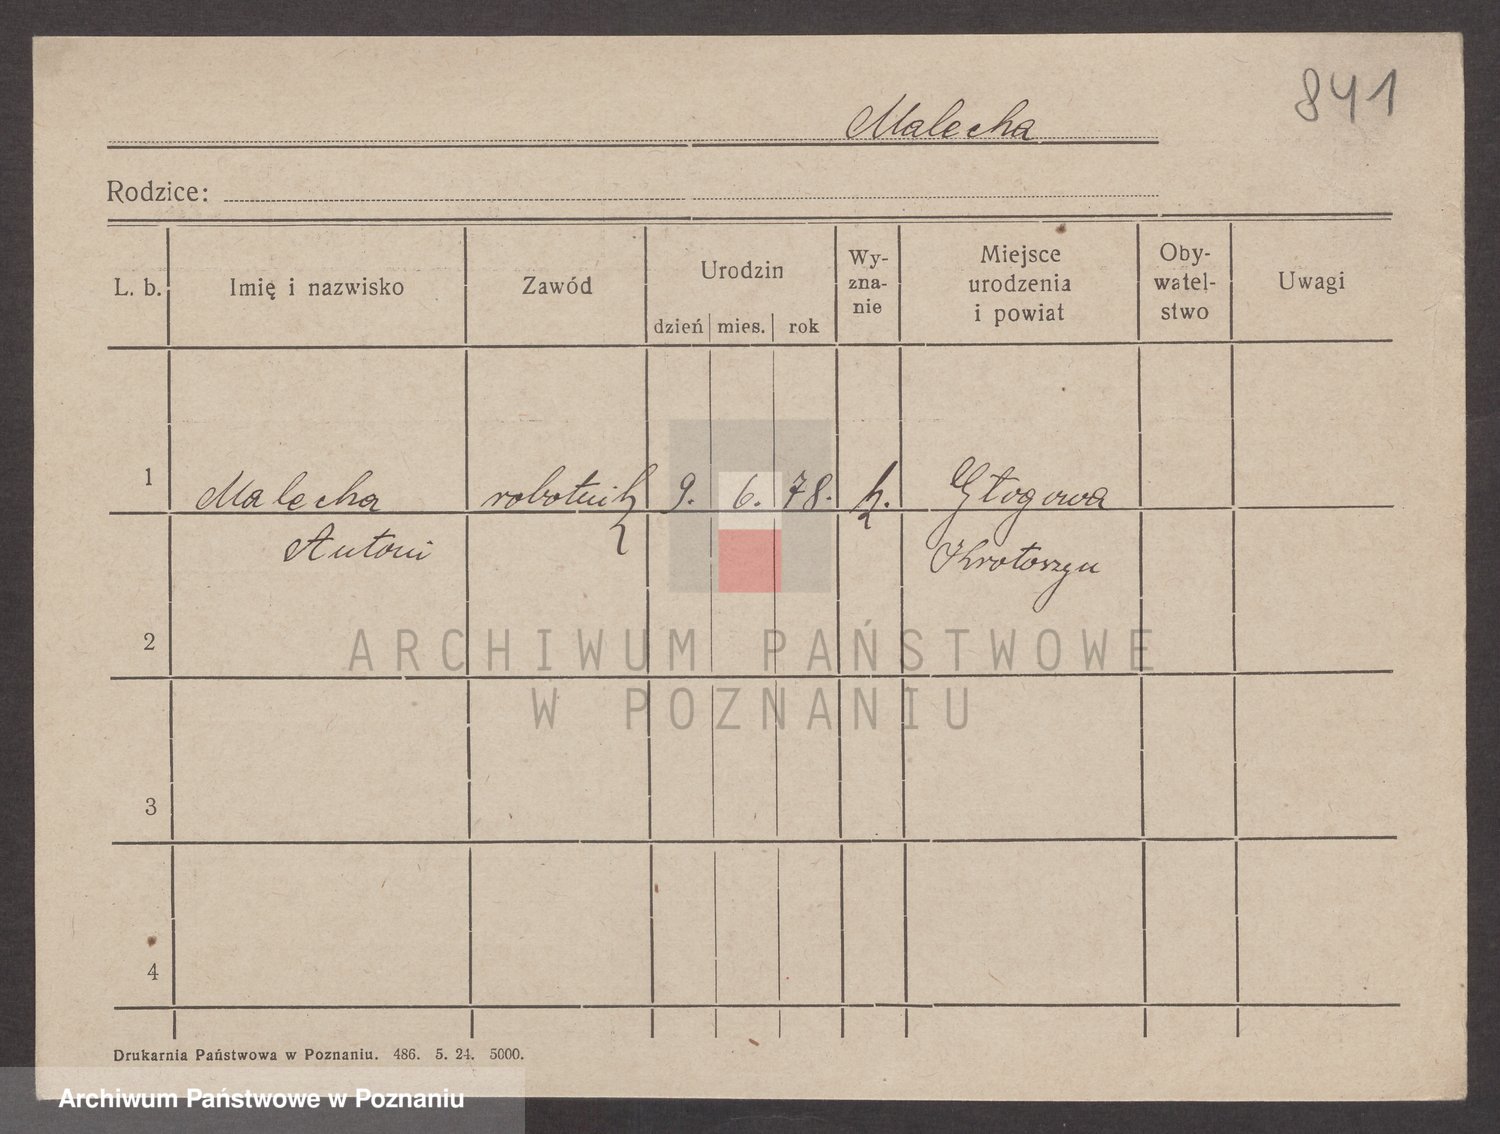 841
Malecha
Rodzice:
L. b.
Imię i nazwisko
Zawód
Urodzin
dzień mies. rok
Wy-
zna-
nie
Miejsce
urodzenia
i powiat
Oby-
watel-
stwo
Uwagi
1 Malecha robotnik 9. 6. 78. k. Głogowa
Antoni Krotoszyn
2
3
4
ARCHIWUM PAŃSTWOWE
W POZNANIU
Drukarnia Państwowa w Poznaniu. 486. 5. 24. 5000.
Archiwum Państwowe w Poznaniu